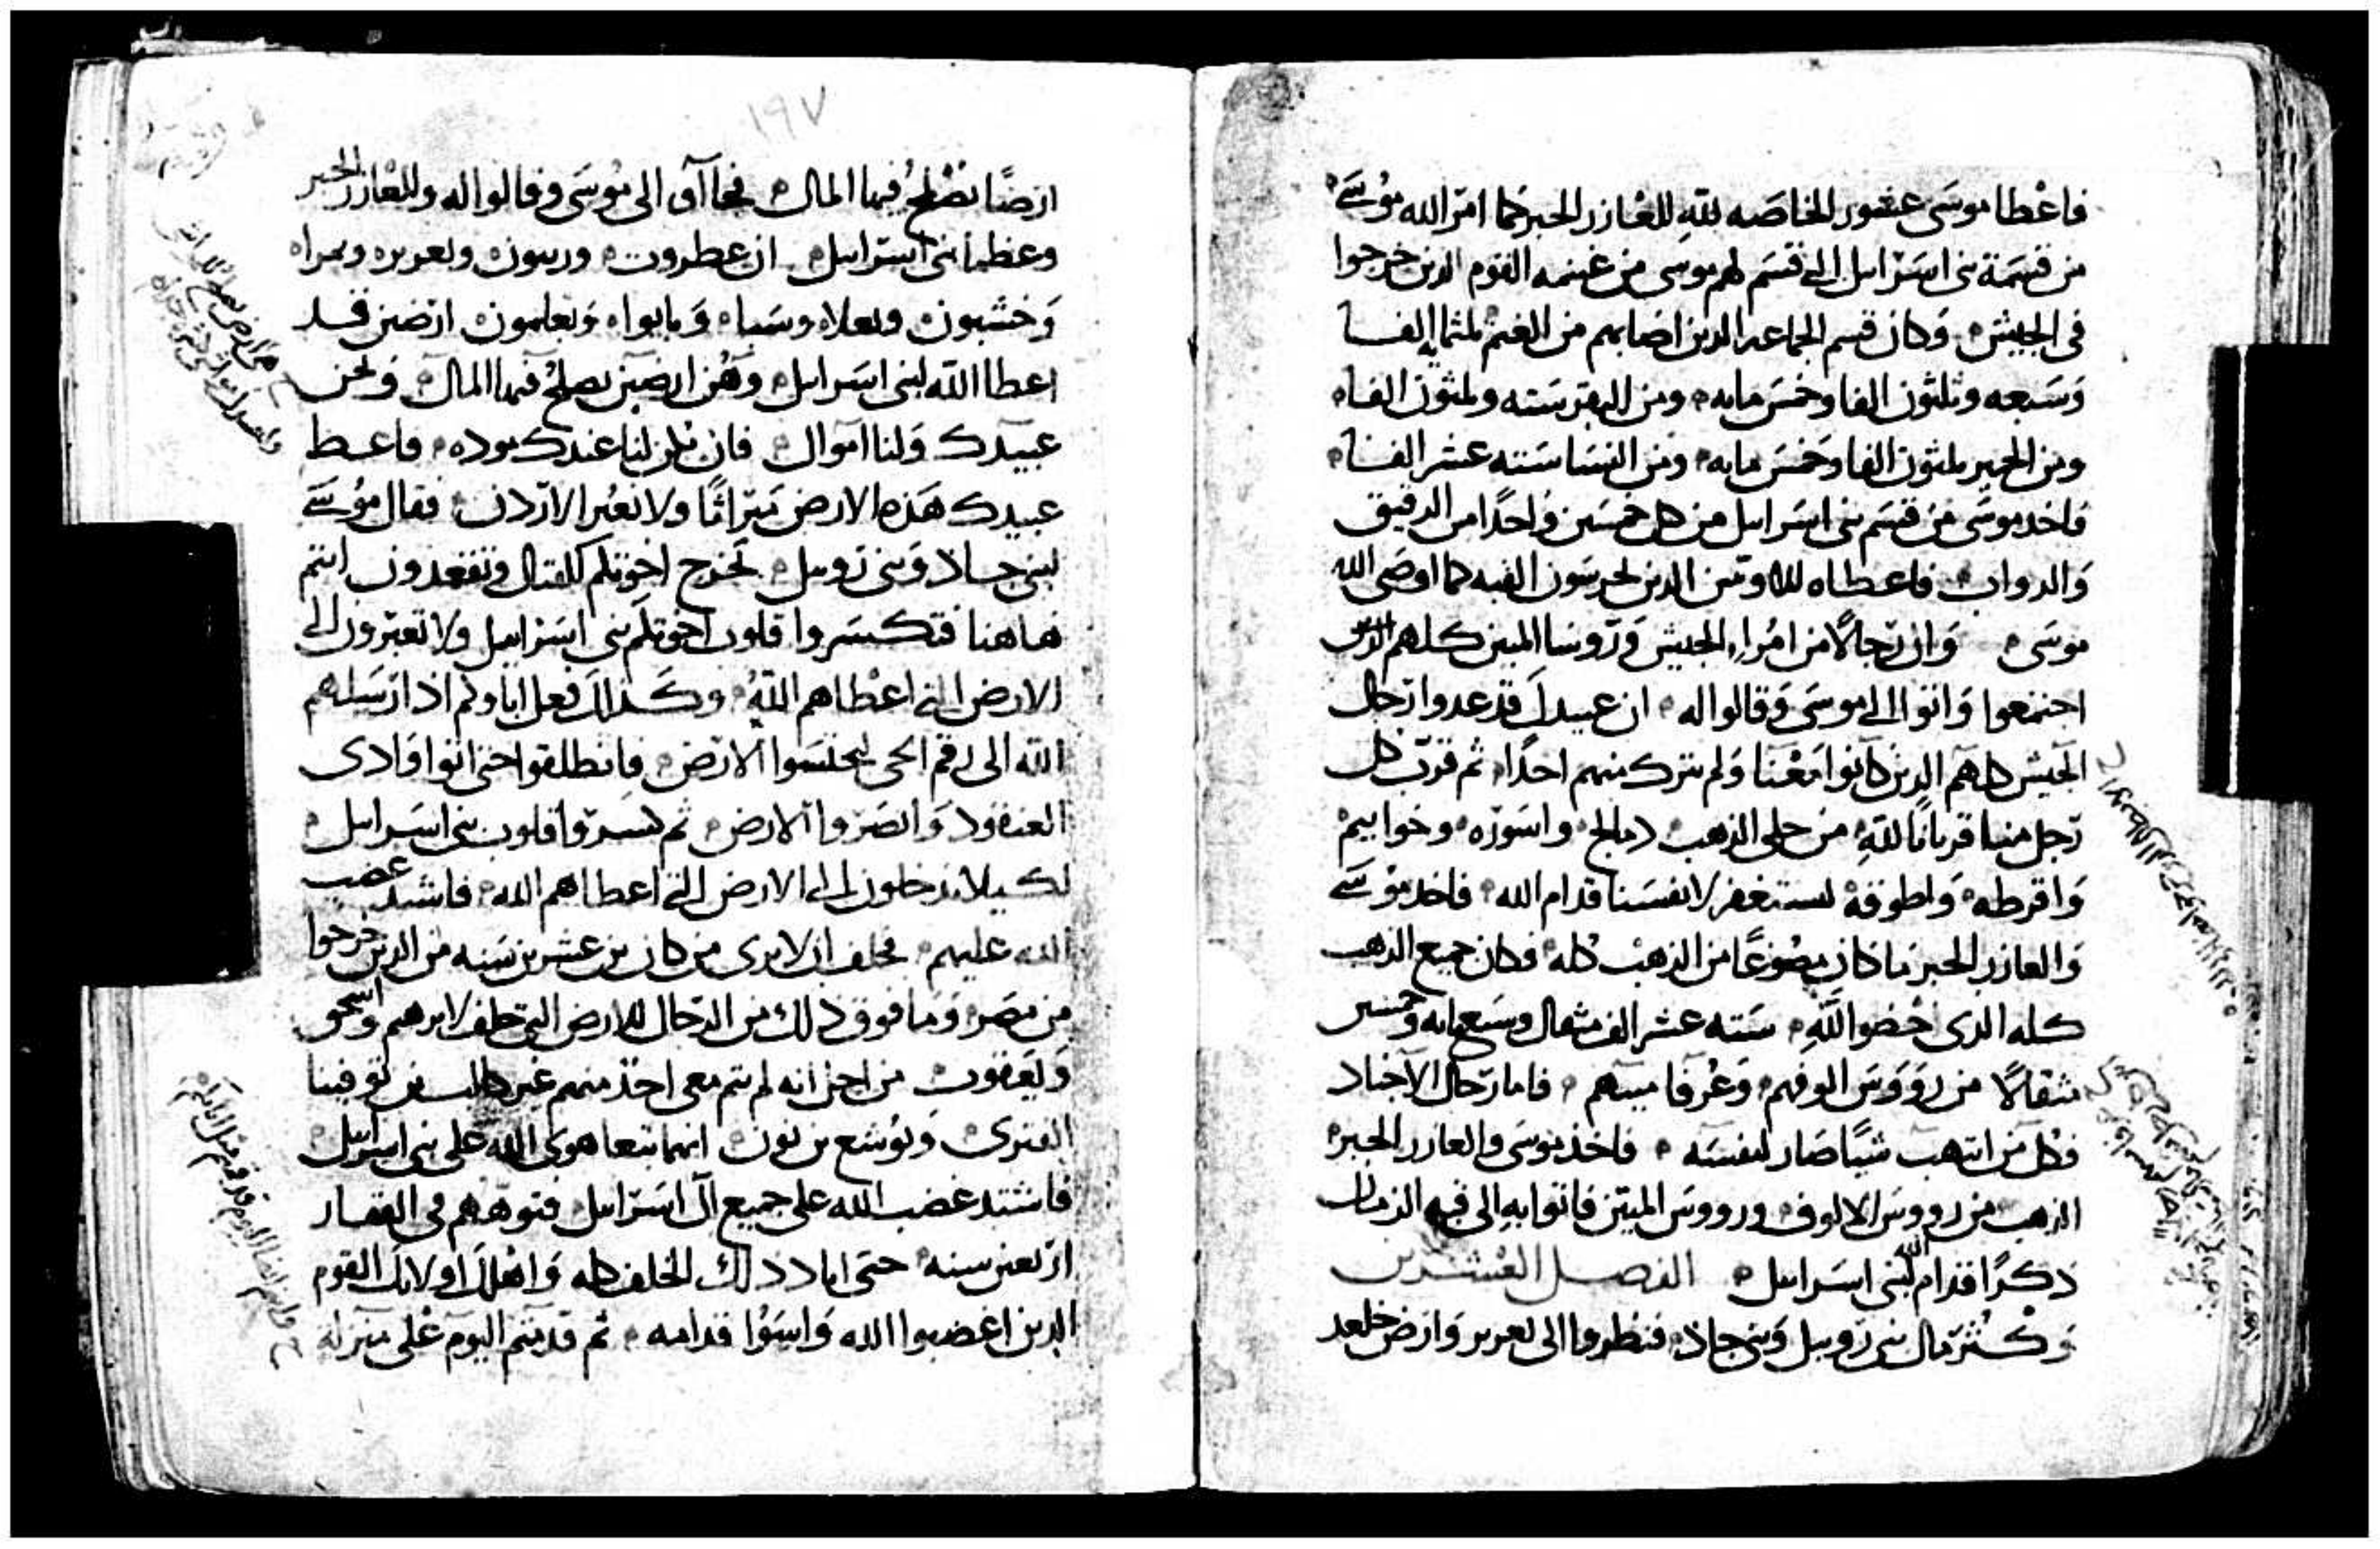 فاعطا موسى عشور الخاصه لله للعازر الحبر كما امر الله موسى
من قسمة بنى اسرائيل التي قسم لهم موسى من غنيمه القوم الدين خرجوا
فى الجيش وكان قسم الجماعه الدين اصابهم من الغنم ثلثمايه الفا
وسبعه وثلثون الفا وخمس مايه ومن البقر سته وثلثون الفا
ومن الحمير ثلثون الفا وخمس مايه ومن النسا سته عشر الفا
فاخد موسى من قسم بنى اسرايل من كل خمسين واحدا من الرقيق
والدواب فاعطاه للاويين الدين يحرسون القبه كما اوصى الله
موسى وان رجالا من امراء الجيش وروسا الميين كلهم الدين
اجتمعوا واتوا الى موسى وقالوا له ان عبيدك قد عدوا رجال
الجيش كلهم الدين كانوا معنا ولم نترك منهم احدا ثم قرب كل
رجل منا قربانا لله من حلى الذهب دمالج واسوره وخواتيم
واقرطه واطوقه لنستغفر لانفسنا قدام الله فاخد موسى
والعازر الحبر ما كان مصوغا من الذهب كله فكان جميع الدهب
كله الدى خصوا الله سته عشر الف مثقال وسبعمايه وخمسين
مثقالا من رووس الوفهم وعرفا ميينهم فاما رجال الاجناد
فكل من انتهب شيا صار لنفسه فاخذ موسى والعازر الحبر
الذهب من رووس الالوف ورووس الميين فاتوا به الى قبه الزمان
ذكرا قدام الله لبنى اسرايل الفصل العشرين
وكثر مال بنى روبيل وبنى جاذ فنظروا الى يعزير وارض جلعد
١٩٧
ارضا تصلح فيها المال فجاآوا الى موسى وقالوا له وللعازر الحبر
وعظما بنى اسرايل ان عطروت وريبون ويعزير ونمراه
وخشبون وبعلاه وسباه ونابوا وبعلمون ارضين قد
اعطا الله لبنى اسرايل وهن ارضين يصلح فيها المال ونحن
عبيدك ولنا اموال فان يكن لنا عندك موده فاعط
عبيدك هذه الارض ميراثا ولا نعبر الاردن فقال موسى
لبنى جاد وبنى روبيل تخرج اخوتكم للقتال وتقعدون انتم
هاهنا فتكسروا قلوب اخوتكم بنى اسرايل ولا تعبرون الى
الارض التي اعطاهم الله وكدلك فعل اباوكم اذ ارسلهم
الله الى رقم الحى ليجتسوا الارض فانطلقوا حتى اتوا وادى
العنقود وابصروا الارض ثم كسروا قلوب بنى اسرايل
لكيلا يدخلون الى الارض التي اعطاهم الله فاشتد غضب
الله عليهم فحلف ان لا يرى من كان بن عشرين سنه من الدين خرجوا
من مصر وما فوق ذلك من الرجال للارض التى حلف لابرهيم واسحق
ويعقوب من اجل انه لم يتم معى احد منهم غير كالب بن يوفينا
القنزى ويوشع بن نون انهما تبعا هوى الله على بنى اسرايل
فاشتد غضب الله على جميع ال اسرايل فتوههم فى القفار
اربعين سنه حتى اباد ذلك الخلف كله واهلك اولايك القوم
الدين اغضبوا الله واسوا قدامه ثم قدمتم اليوم على منزلة